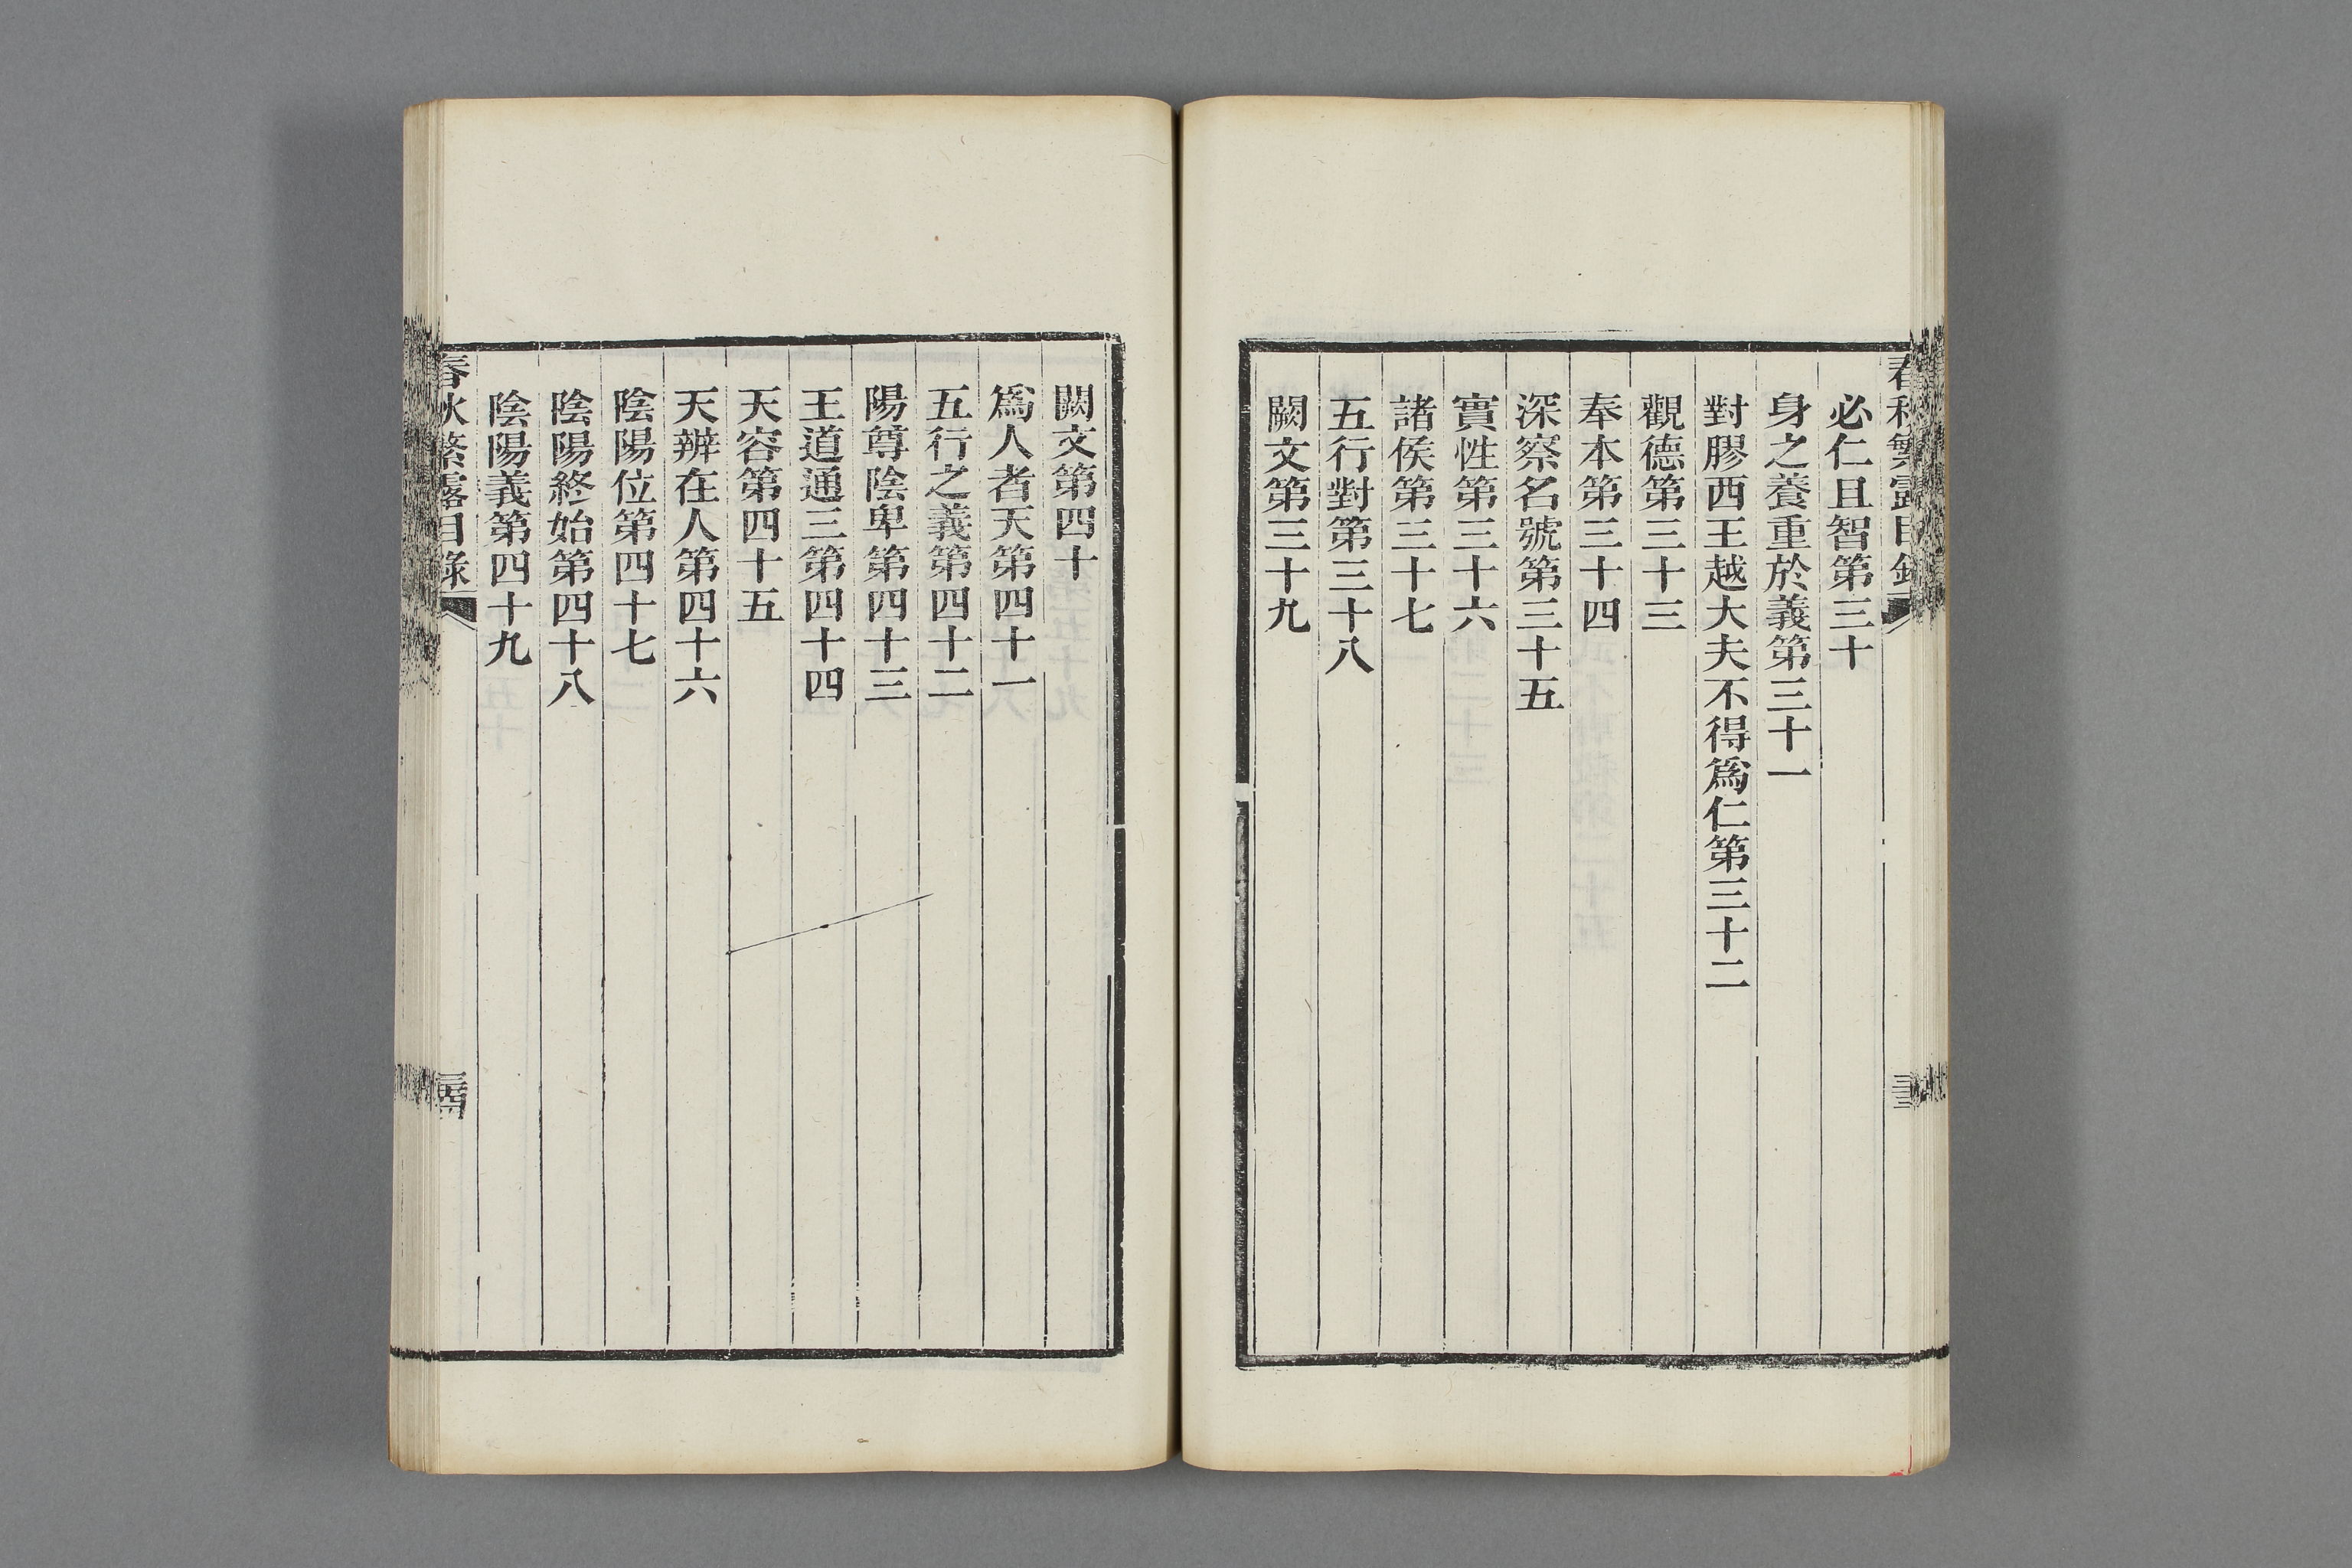 春秋繁露目錄
必仁且智第三十
身之養重於義第三十一
對膠西王越大夫不得爲仁第三十二
觀德第三十三
奉本第三十四
深察名號第三十五
實性第三十六
諸侯第三十七
五行對第三十八
闕文第三十九
闕文第四十
爲人者天第四十一
五行之義第四十二
陽尊陰卑第四十三
王道通三第四十四
天容第四十五
天辨在人第四十六
陰陽位第四十七
陰陽終始第四十八
陰陽義第四十九
春秋繁露目錄